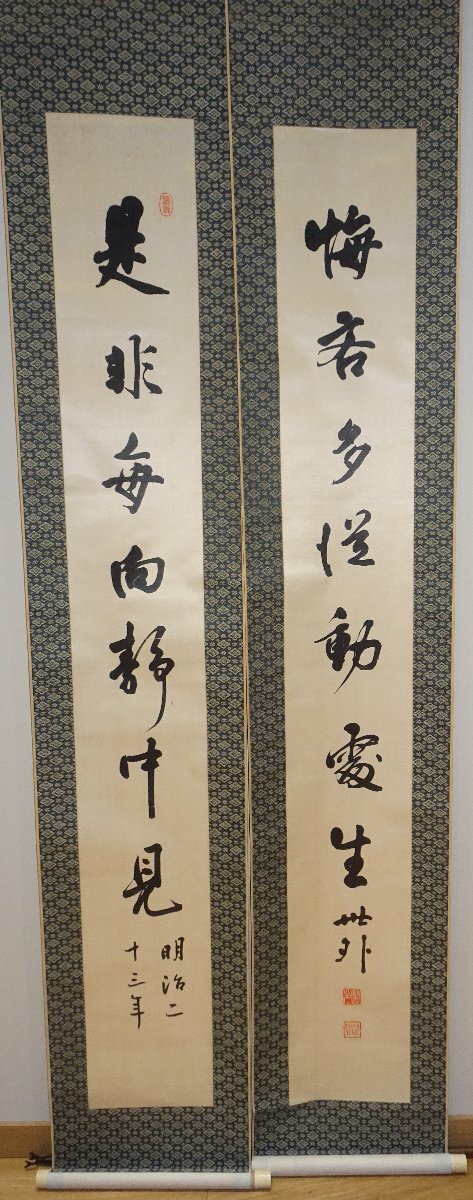 是非毎向靜中見
明治二
十三年
悔吝多從動處生
世外